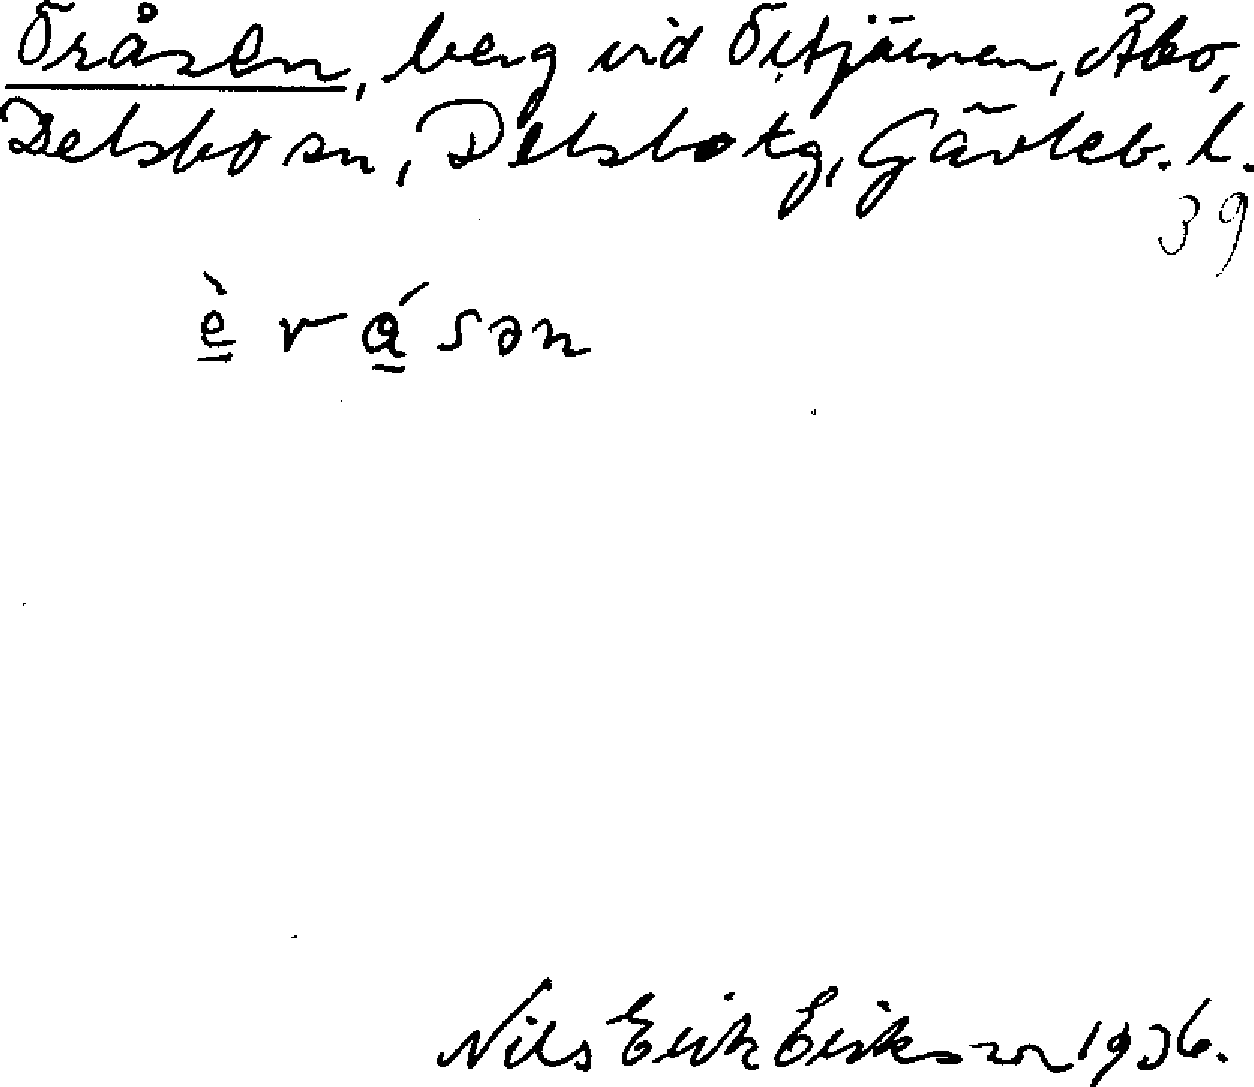 Öråsen, berg vid Örtjärnen, Åbo,
Delsbo sn, Delsbo tg, Gävleb. l.
39
è r ǻ s ə n
Nils Erik Eriksson 1936.